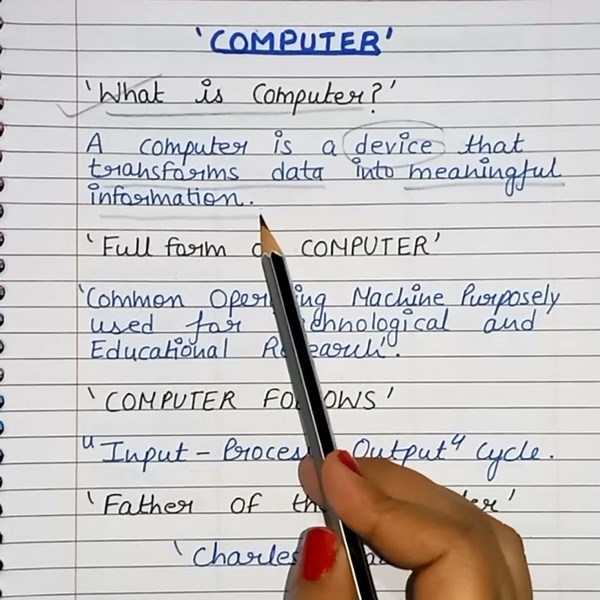 'COMPUTER'
'What is Computer?'
A computer is a device that
transforms data into meaningful
information.
'Full form COMPUTER'
'Common Machine Purposely
used for and
Educational
'COMPUTER
"Input - Output" Cycle.
'Father of
'Charles